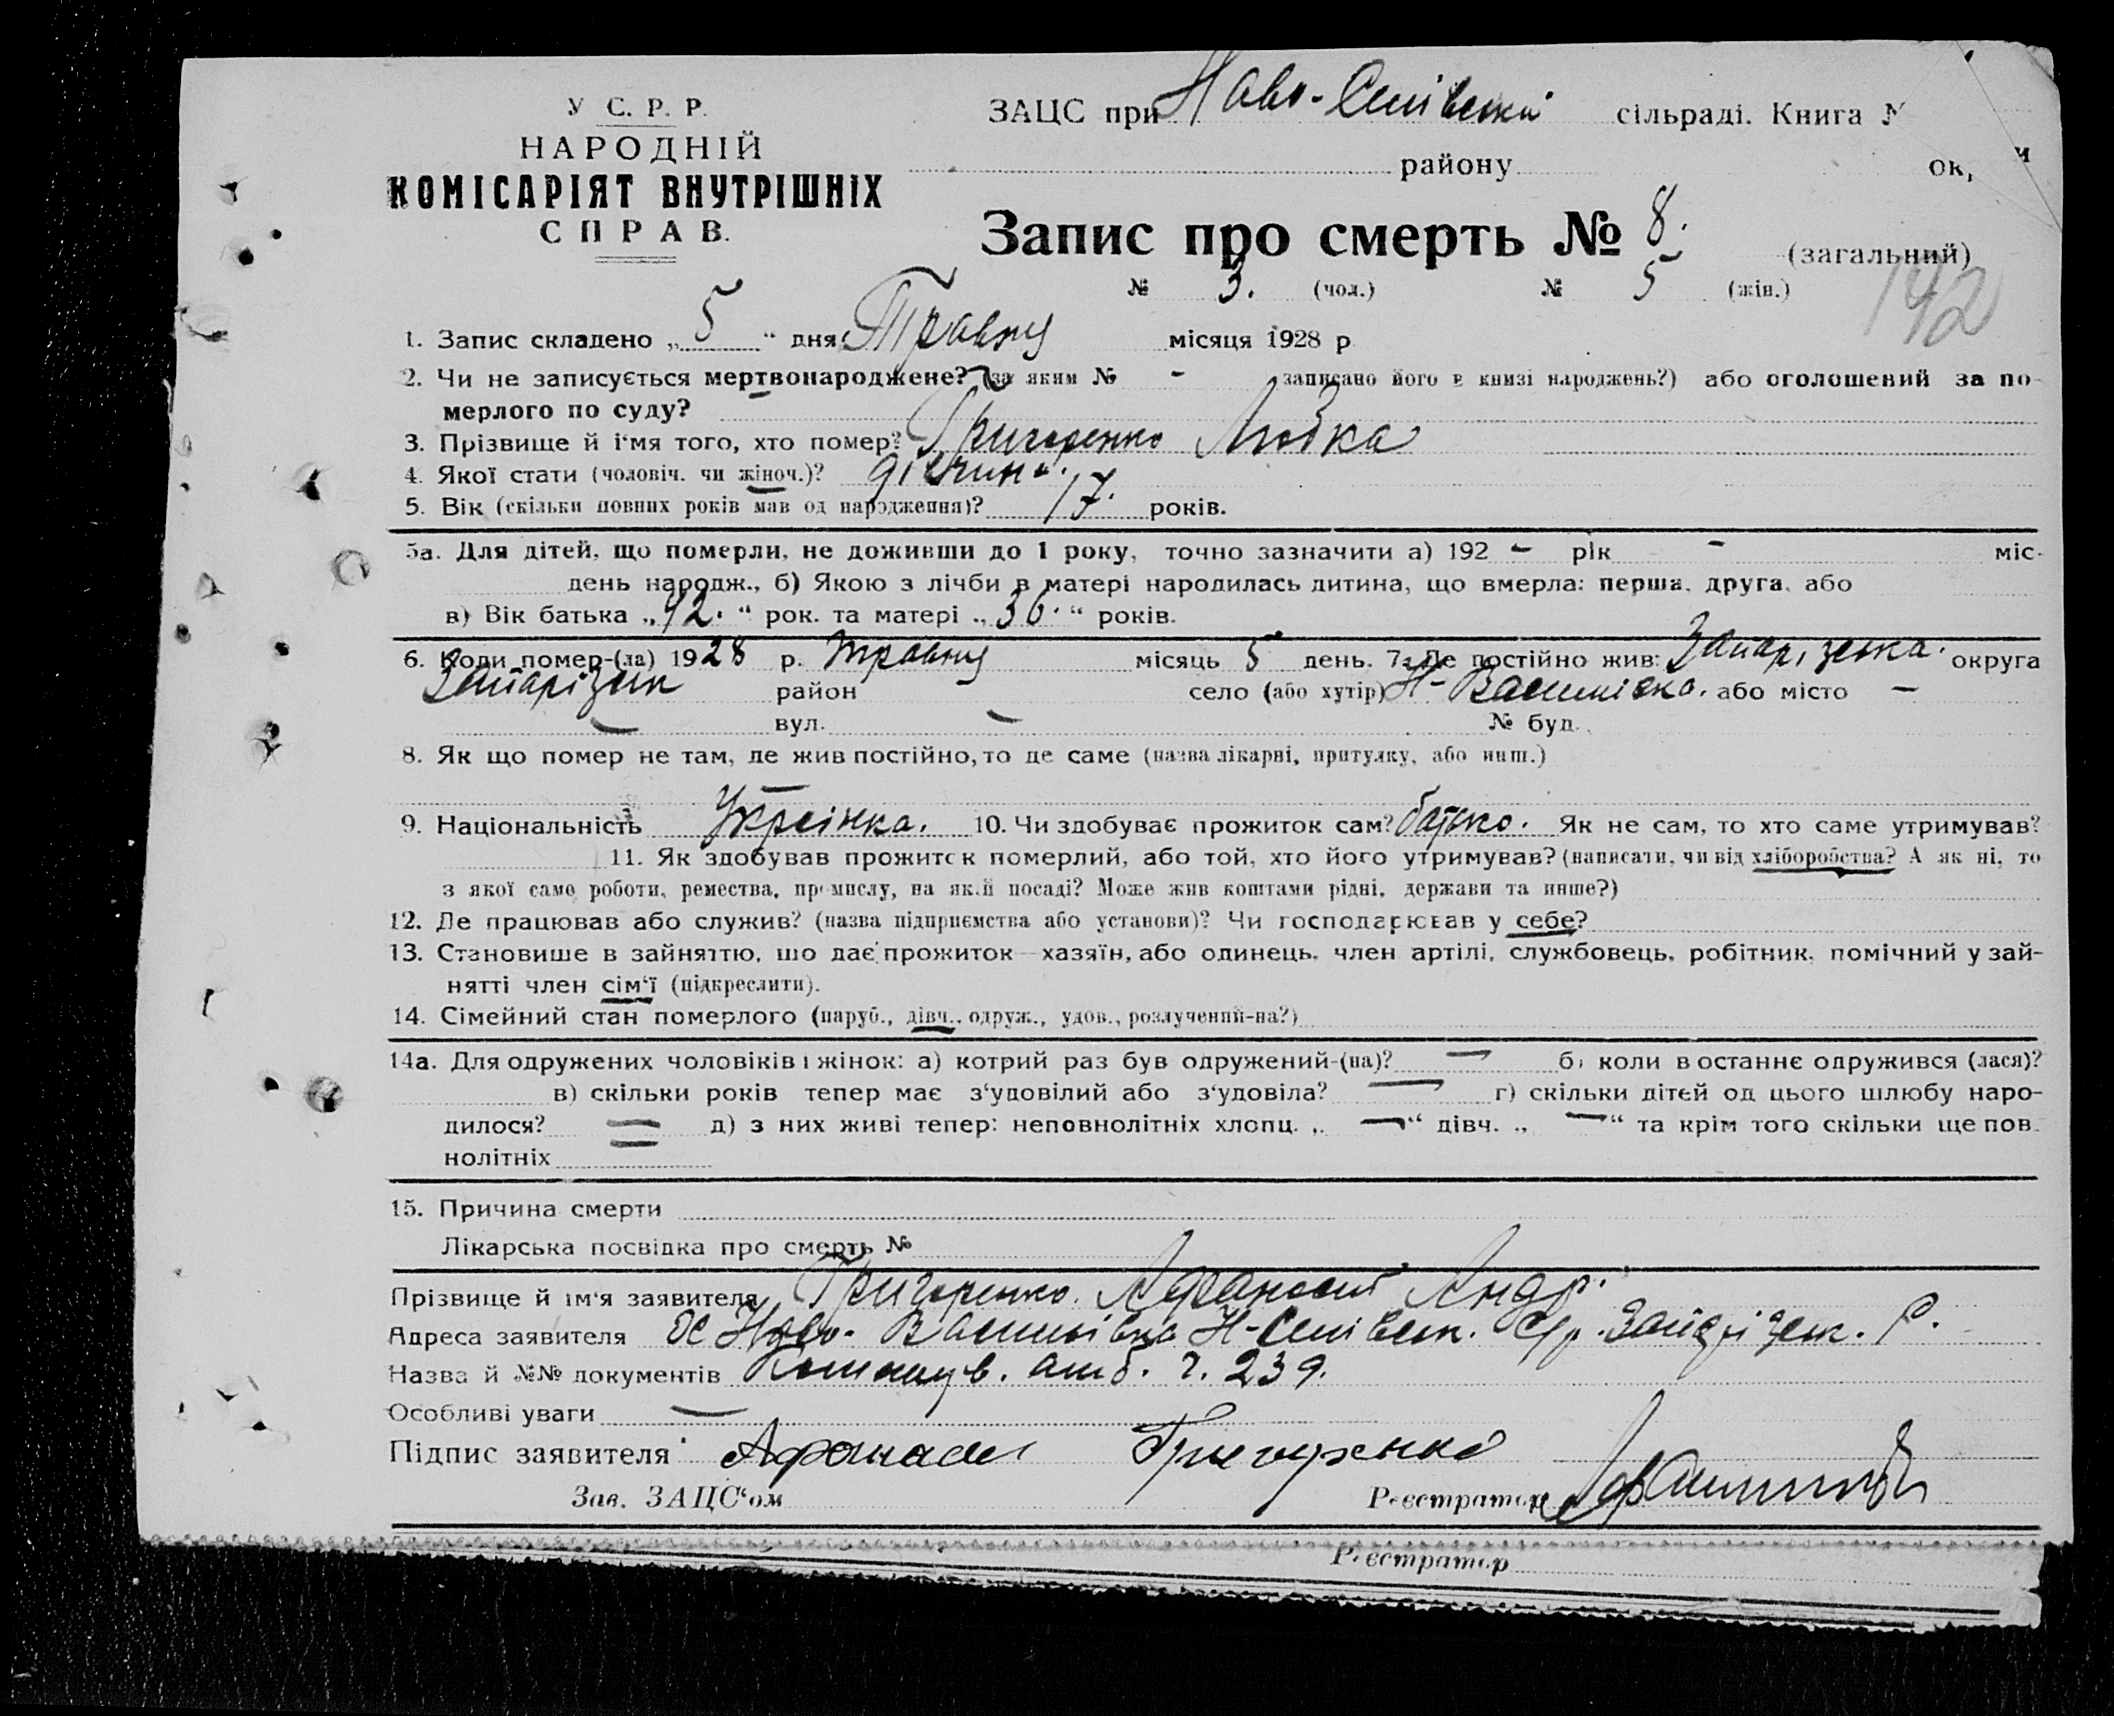 У С. Р. Р.
НАРОДНІЙ
КОМІСАРІЯТ ВНУТРІШНІХ
СПРАВ.
ЗАЦС при Ново- сільраді. Книга
району ок,
Запис про смерть № 8. (загальний)
№ 3. (чол.) № 5 (жін.)
142
1. Запис складено „ 5 “ дня Травня місяця 1928 р
2. Чи не записується мертвонароджене? (за яким № - записано його в книзі народжень?) або оголошений за по-
мерлого по суду?
3. Прізвище й і‘мя того, хто помер? Григоренко Любка
4. Якої стати (чоловіч. чи жіноч.)? дівчина.
5. Вік (скільки повних років мав од народження)? 17. років.
5а. Для дітей, що померли, не доживши до 1 року, точно зазначити а) 192 - рік - міс-
день народж., б) Якою з лічби в матері народилась дитина, що вмерла: перша, друга, або
в) Вік батька „ 42. “ рок. та матері „ 36. “ років.
6. Коли помер-(ла) 1928 р. травня місяць 5 день. 7. Де постійно жив: Запорізька. округа
Запорізьк район село (або хутір) Н- Василівка. або місто -
вул. - № буд.
8. Як що помер не там, де жив постійно, то де саме (назва лікарні, притулку, або инш.)
9. Національність Українка. 10. Чи здобуває прожиток сам? батько. Як не сам, то хто саме утримував?
11. Як здобував прожиток померлий, або той, хто його утримував? (написати, чи від хліборобства? А як ні, то
з якої саме роботи, ремества, промислу, на якій посаді? Може жив коштами рідні, держави та инше?)
12. Де працював або служив? (назва підприємства або установи)? Чи господарював у себе?
13. Становище в зайняттю, що дає прожиток—хазяїн, або одинець, член артілі, службовець, робітник, помічний у зай-
нятті член сім‘ї (підкреслити).
14. Сімейний стан померлого (паруб., дівч., одруж., удов., розлучений-на?)
14а. Для одружених чоловіків і жінок: а) котрий раз був одружений-(на)? — б) коли в останнє одружився (лася)?
в) скільки років тепер має з‘удовілий або з‘удовіла? — г) скільки дітей од цього шлюбу наро-
дилося? — д) з них живі тепер: неповнолітніх хлопц. „ — “ дівч. „ — “ та крім того скільки ще пов-
нолітніх
15. Причина смерти
Лікарська посвідка про смерть №
Прізвище й ім‘я заявителя Григоренко Афанасий Андр.
Адреса заявителя Ново- Василівка Р.
Назва й №№ документів 239.
Особливі уваги —
Підпис заявителя Афанасій Григоренко
Зав. ЗАЦС‘ом Реєстратор
Реєстратор